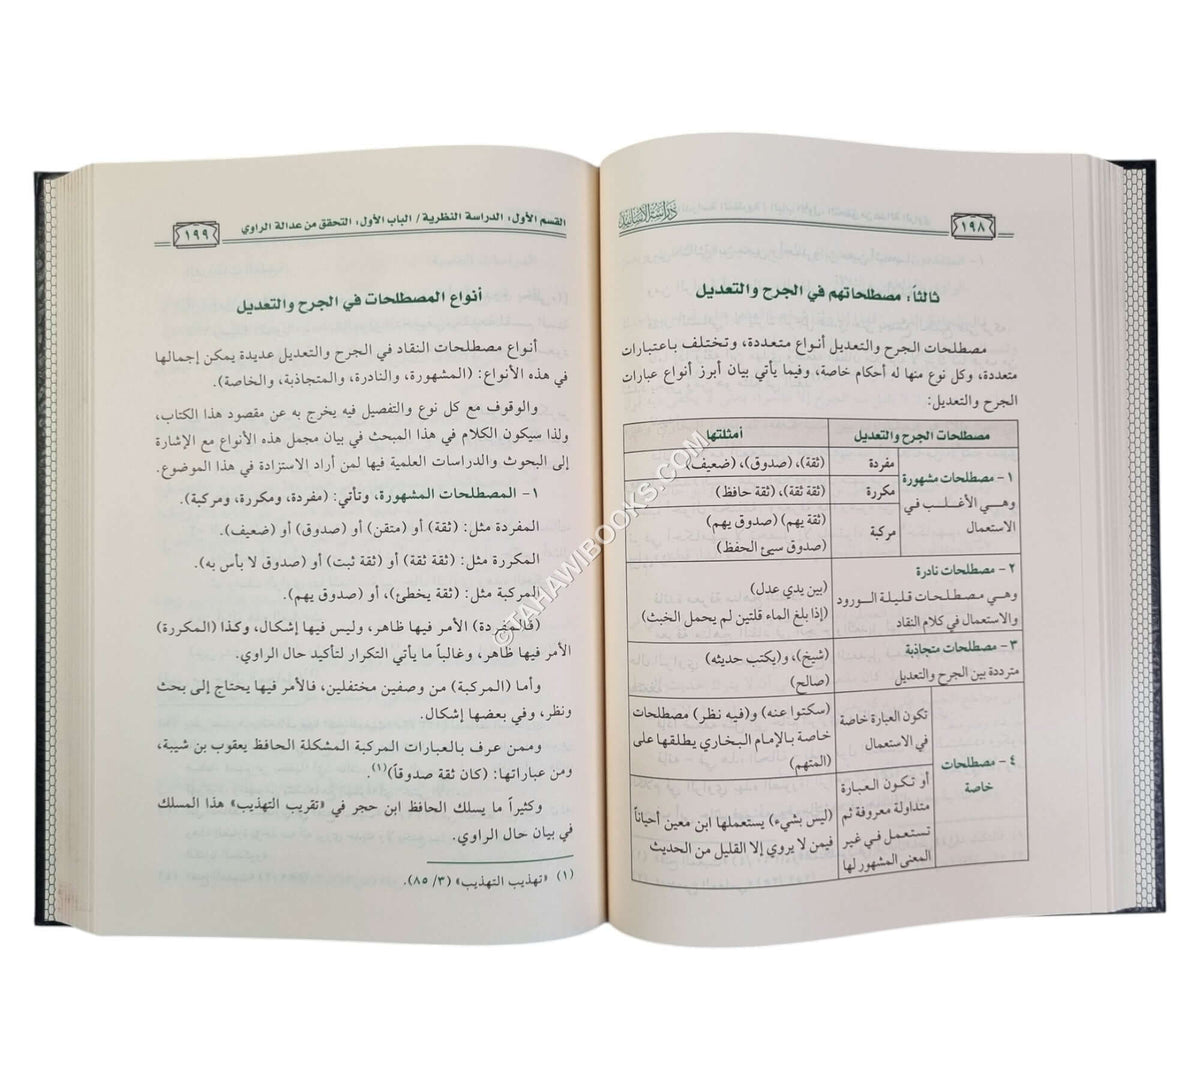 ١٩٨
دراسة الأسانيد
ثالثاً: مصطلحاتهم في الجرح والتعديل
مصطلحات الجرح والتعديل أنواع متعددة، وتختلف باعتبارات
متعددة، وكل نوع منها له أحكام خاصة، وفيما يأتي بيان أبرز أنواع عبارات
الجرح والتعديل:
مصطلحات الجرح والتعديل
أمثلتها
١- مصطلحات مشهورة
وهي الأغلب في
الاستعمال
مفردة
(ثقة)، (صدوق)، (ضعيف)
مكررة
(ثقة ثقة)، (ثقة حافظ)
مركبة
(ثقة يهم) (صدوق يهم)
(صدوق سيئ الحفظ)
٢- مصطلحات نادرة
وهي مصطلحات قليلة الورود
والاستعمال في كلام النقاد
(بين يدي عدل)
(إذا بلغ الماء قلتين لم يحمل الخبث)
٣- مصطلحات متجاذبة
مترددة بين الجرح والتعديل
(شيخ)، و(يكتب حديثه)
(صالح)
٤- مصطلحات
خاصة
تكون العبارة خاصة
في الاستعمال
(سكتوا عنه) و(فيه نظر) مصطلحات
خاصة بالإمام البخاري يطلقها على
(المتهم)
أو تكون العبارة
متداولة معروفة ثم
تستعمل في غير
المعنى المشهور لها
(ليس بشيء) يستعملها ابن معين أحياناً
فيمن لا يروي إلا القليل من الحديث
القسم الأول: الدراسة النظرية / الباب الأول: التحقق من عدالة الراوي
١٩٩
أنواع المصطلحات في الجرح والتعديل
أنواع مصطلحات النقاد في الجرح والتعديل عديدة يمكن إجمالها
في هذه الأنواع: (المشهورة، والنادرة، والمتجاذبة، والخاصة).
والوقوف مع كل نوع والتفصيل فيه يخرج به عن مقصود هذا الكتاب،
ولذا سيكون الكلام في هذا المبحث في بيان مجمل هذه الأنواع مع الإشارة
إلى البحوث والدراسات العلمية فيها لمن أراد الاستزادة في هذا الموضوع.
١- المصطلحات المشهورة، وتأتي: (مفردة، ومكررة، ومركبة).
المفردة مثل: (ثقة) أو (متقن) أو (صدوق) أو (ضعيف).
المكررة مثل: (ثقة ثقة) أو (ثقة ثبت) أو (صدوق لا بأس به).
المركبة مثل: (ثقة يخطئ)، أو (صدوق يهم).
(فالمفردة) الأمر فيها ظاهر، وليس فيها إشكال، وكذا (المكررة)
الأمر فيها ظاهر، وغالباً ما يأتي التكرار لتأكيد حال الراوي.
وأما (المركبة) من وصفين مختفلين، فالأمر فيها يحتاج إلى بحث
ونظر، وفي بعضها إشكال.
وممن عرف بالعبارات المركبة المشكلة الحافظ يعقوب بن شيبة،
ومن عباراتها: (كان ثقة صدوقاً)(١).
وكثيراً ما يسلك الحافظ ابن حجر في «تقريب التهذيب» هذا المسلك
في بيان حال الراوي.
(١) «تهذيب التهذيب» (٣/ ٨٥).
©TAHAWIBOOKS.COM